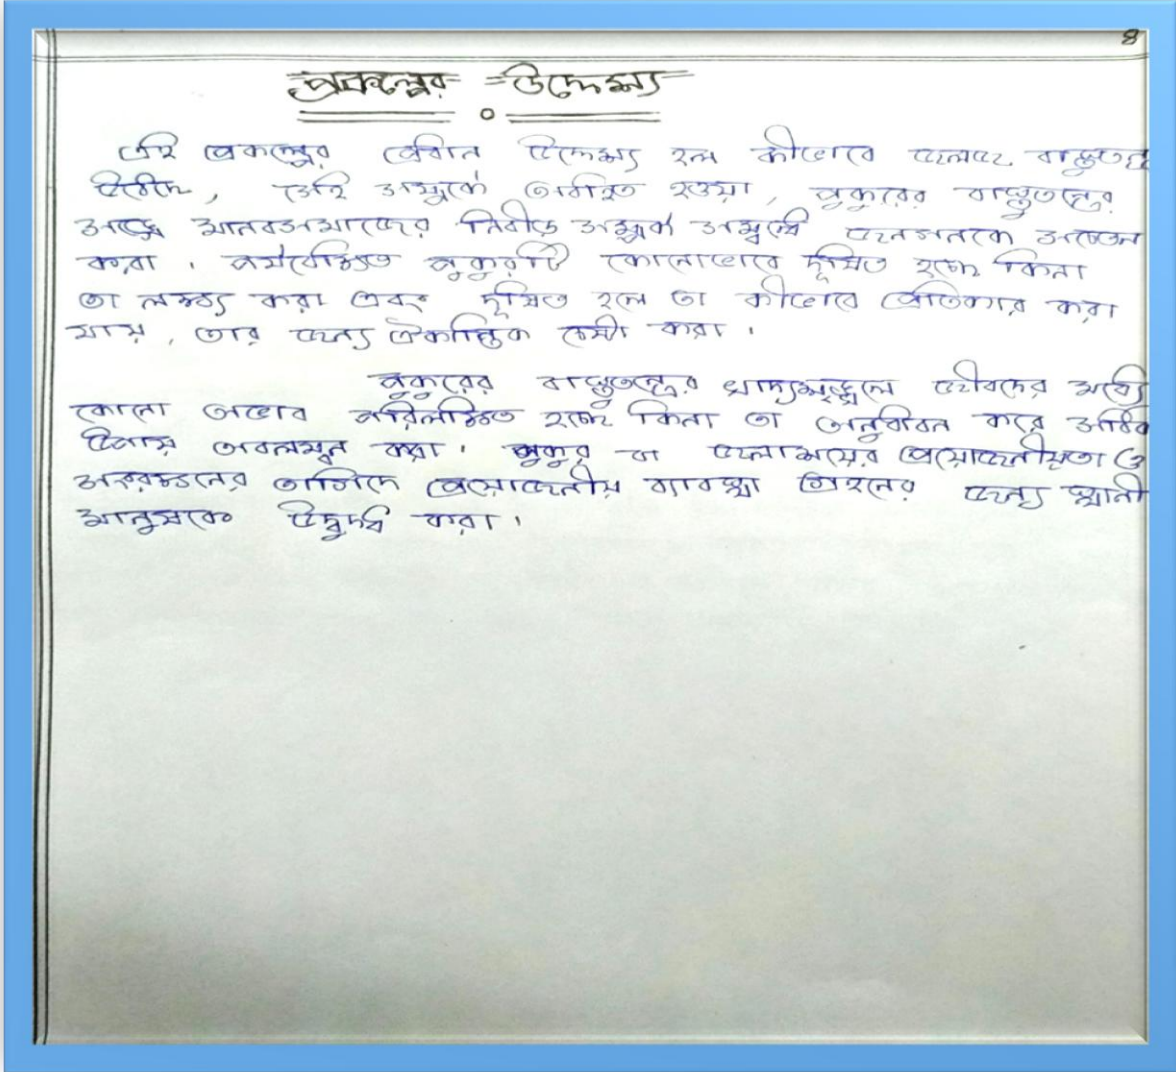 ৪
প্রকল্পের উদ্দেশ্য
এই প্রকল্পের প্রধান উদ্দেশ্য হল কীভাবে জলজ বাস্তুতন্ত্র
সেই সম্পর্কে অবহিত হওয়া, পুকুরের বাস্তুতন্ত্রের
সঙ্গে মানবসমাজের নিবীড় সম্পর্ক সম্বন্ধে জনগনকে সচেতন
করা। পর্যবেক্ষিত পুকুরটি কোনোভাবে দূষিত হচ্ছে কিনা
তা লক্ষ্য করা এবং দূষিত হলে তা কীভাবে প্রতিকার করা
যায়, তার জন্য ঐকান্তিক চেষ্টা করা।
পুকুরের বাস্তুতন্ত্রের খাদ্যশৃঙ্খলে জীবদের মধ্যে
কোনো অভাব পরিলক্ষিত হচ্ছে কিনা তা অনুধাবন করে সঠিক
উপায় অবলম্বন করা। পুকুর বা জলাশয়ের প্রয়োজনীয়তা ও
সংরক্ষনের তাগিদে প্রয়োজনীয় ব্যবস্থা গ্রহনের জন্য স্থানী
মানুষকে উদ্বুদ্ধ করা।